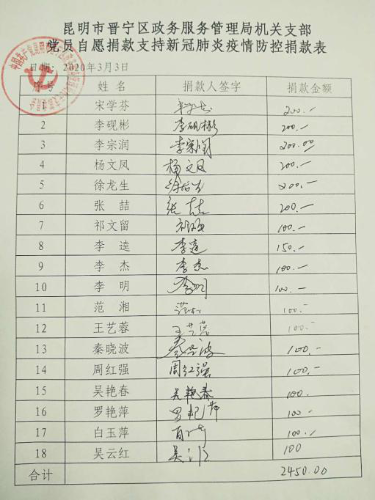 昆明市晋宁区政务服务管理局机关支部
党员自愿捐款支持新冠肺炎疫情防控捐款表
日期：2020年3月3日
姓名 捐款人签字 捐款金额
宋学芬 200.-
2 李砚彬 李砚彬 200.-
3 李宗润 李宗润 200.00
4 杨文凤 杨文凤 200.-
5 徐龙生 徐龙生 200.-
6 张喆 张喆 200.-
7 祁文留 100.-
8 李逵 李逵 150.-
9 李杰 李杰 100.-
10 李明 李明 100.-
11 范湘 范湘 100.-
12 王艺蓉 王艺蓉 100.-
13 秦晓波 秦晓波 100.-
14 周红强 周红强 100.-
15 吴艳春 吴艳春 100.-
16 罗艳萍 100
17 白玉萍 100.-
18 吴云红 100
合计 2450.00